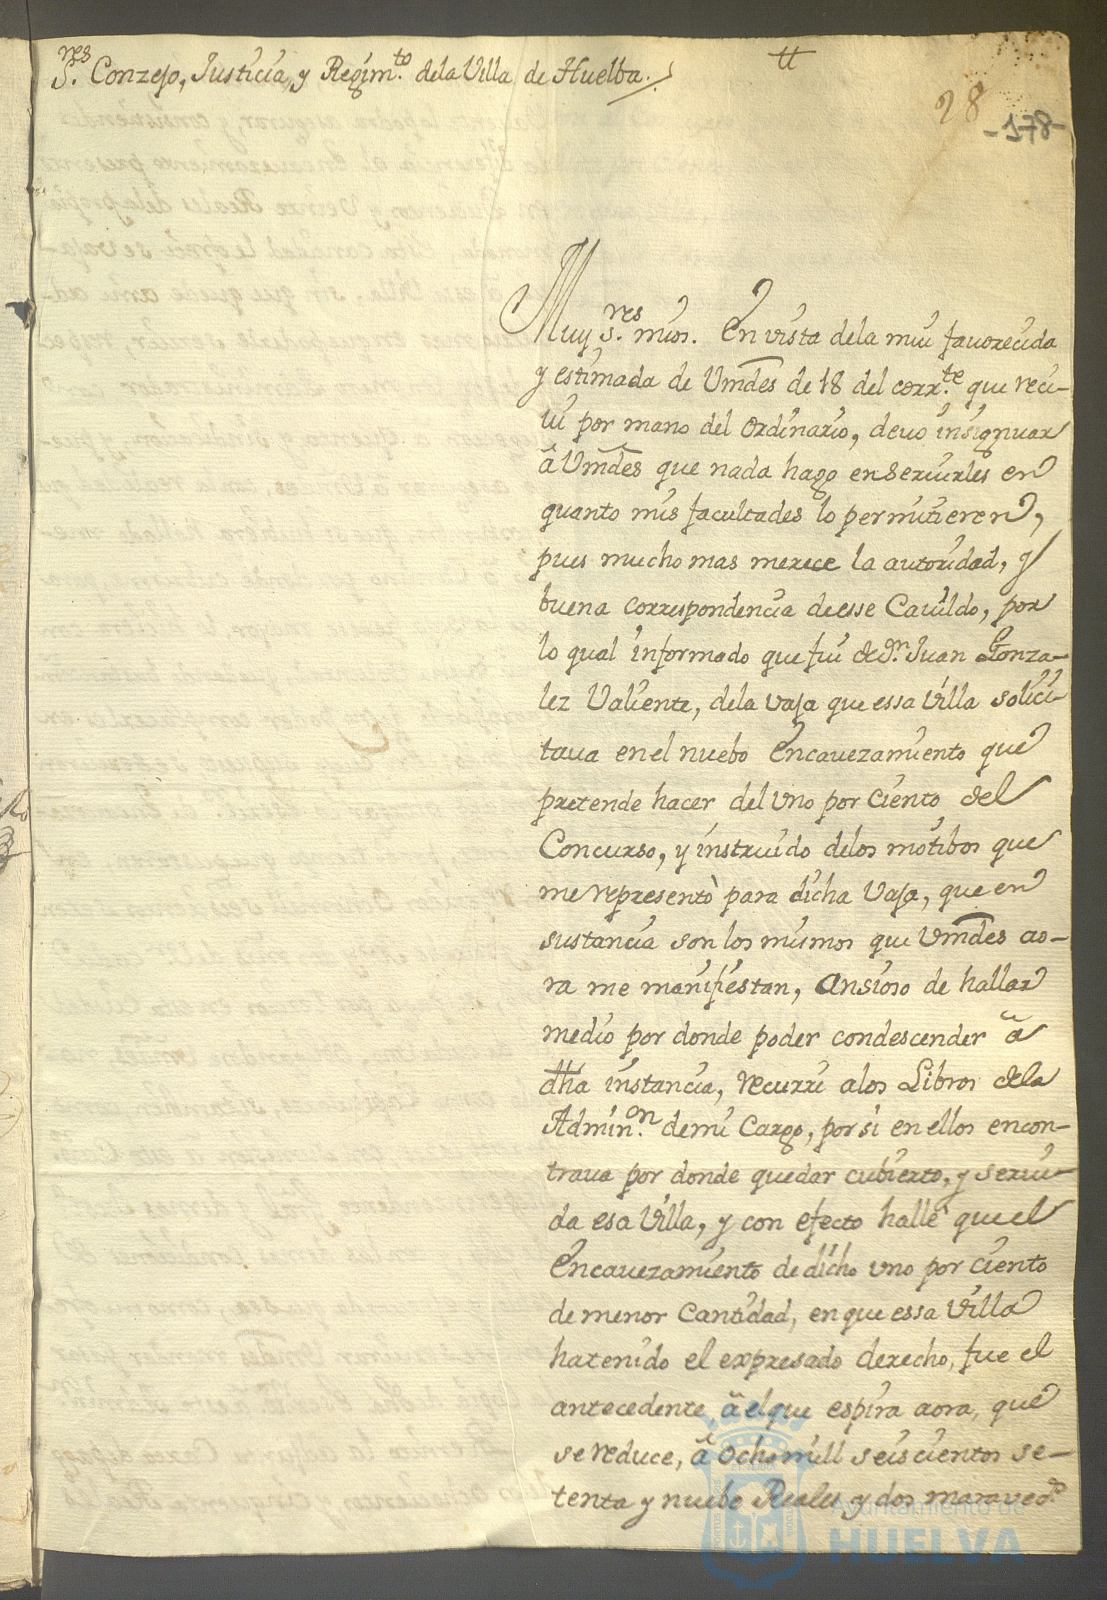 S.res Conzejo, Justicia, y Regim.to dela Villa de Huelba.
tt
28
-178-
Muy S.res mios. En vista dela mui favorecida
y estimada de Vmdes de 18 del corr.te que reci-
ui por mano del ordinario, devo insignuar
â Vmdes que nada hago en seruirles en
quanto mis facultades lo permitieren,
pues mucho mas merece la autoridad, y
buena correspondencia deesse Cauildo, por
lo qual informado que fui de Dn. Juan Gonza-
lez Valiente, dela vaja que essa Villa solici-
taua en el nuebo Encauezamiento que
pretende hacer del Uno por Ciento del
Concurso, y instruido delos motibos que
me representò para dicha Vaja, que en
sustancia son los mismos que Vmdes ao-
ra me manifiestan, Ansioso de hallar
medio por donde poder condescender â
dha instancia, recurri alos Libros dela
Admin.on demi Cargo, por si en ellos encon-
traua por donde quedar cubierto, y serui-
da esa Villa, y con efecto hallè que el
Encauezamiento de dicho uno por ciento
de menor Cantidad, en que essa Villa
hatenido el expresado derecho, fue el
antecedente â el que espira aora, que
se reduce, â ocho mill seiscientos se-
tenta y nuebe Reales y dos maraved.s
Ayuntamiento de
HUELVA